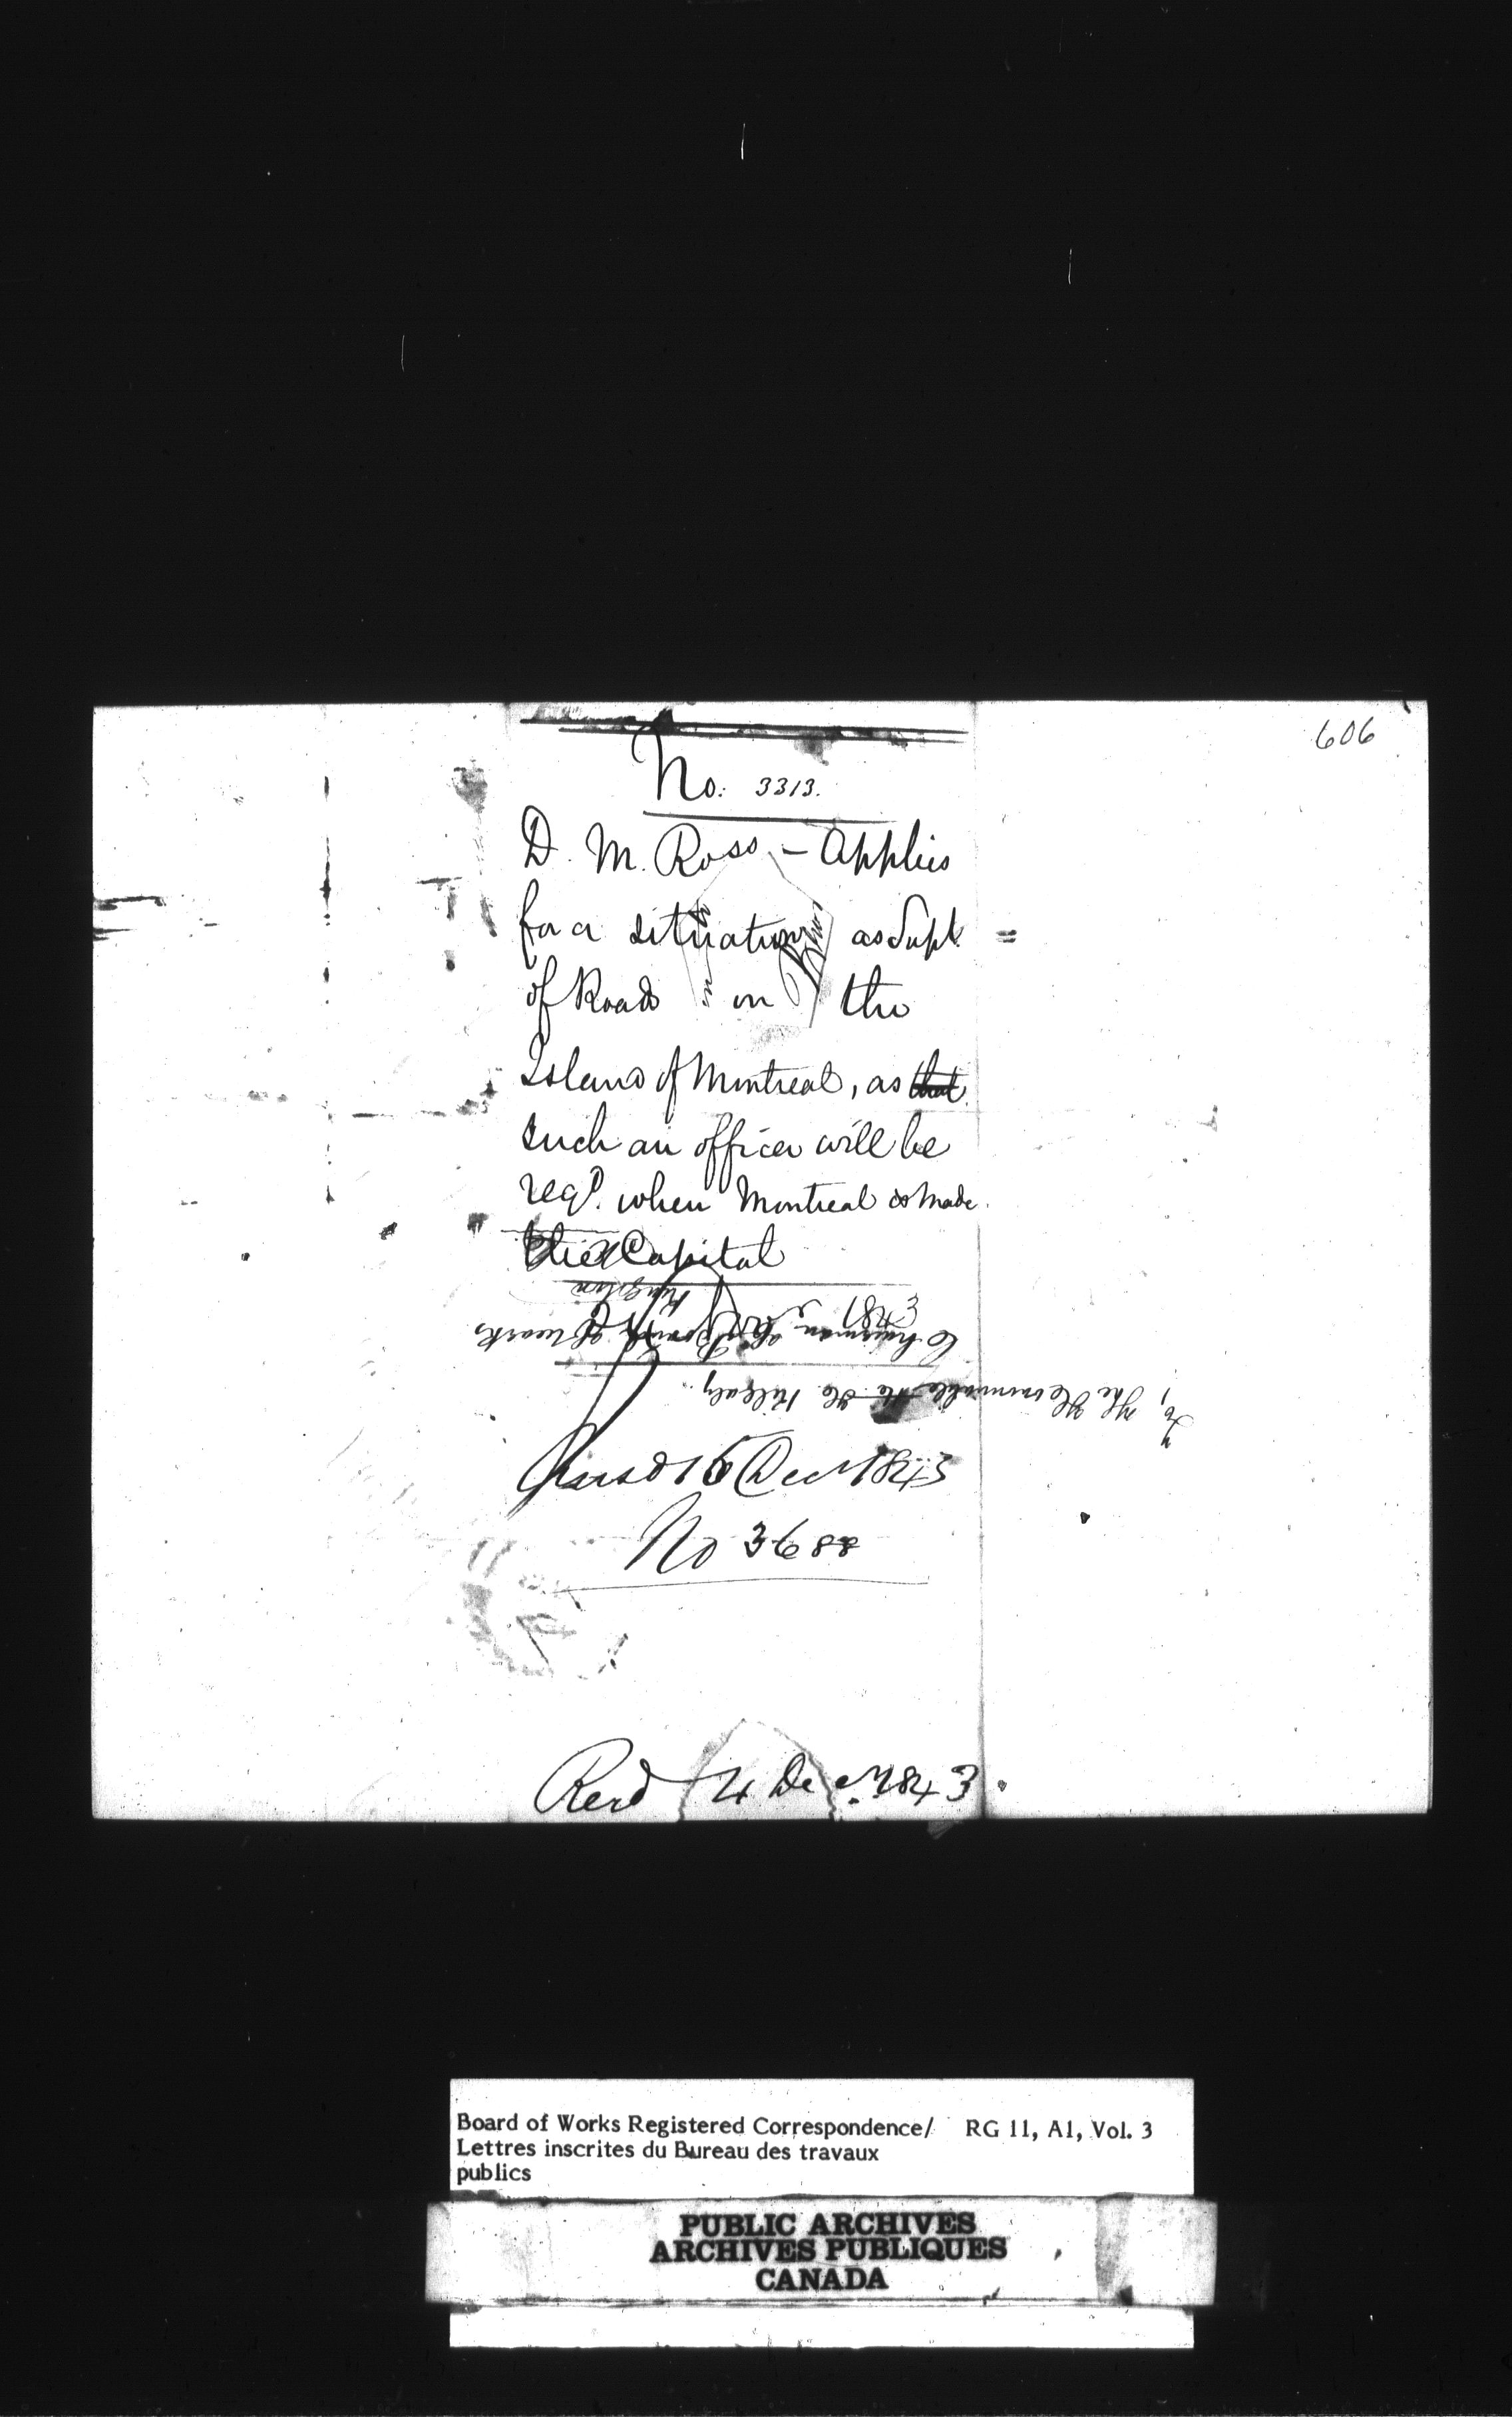 606
No. 3313.
D. M. Ross - Applies
for a situation as Supt =
of Roads on the
Island of Montreal, as that
such an officer will be
reqd. when Montreal is made
the Capital
To, The Honourable H. H. Killaly
Chairman of Board of Works
Kingston
Ansd 15 Decr 1843
No 3688
Recd 4 Decr. 1843.
Board of Works Registered Correspondence/ RG 11, A1, Vol. 3
Lettres inscrites du Bureau des travaux
publics
PUBLIC ARCHIVES
ARCHIVES PUBLIQUES
CANADA